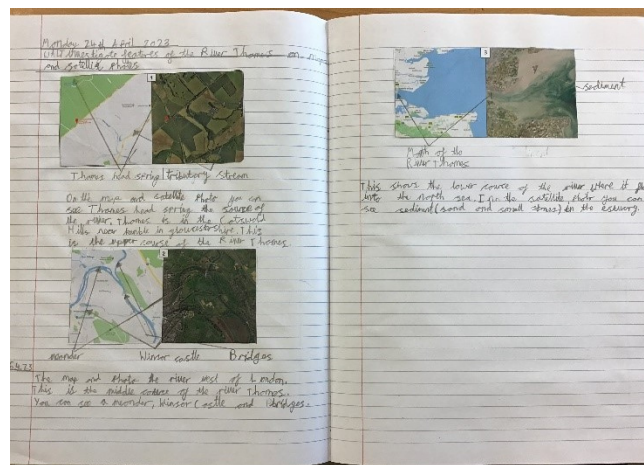 Monday 24th April 2023
features of the River Thames on maps
and satellite photos
1
Thames head spring/tributary stream
On the map and satellite photo you can
see Thames head spring the source of
the river. Thames is in the Cotswold
Hills near kemble in gloucestershire. This
is the upper course of the River Thames.
2
meander Winsor castle Bridges
The map and photo the river west of London.
This is the middle course of the river Thames.
You can see a meander, Winsor Castle and Bridges.
3
sediment
Mouth of the
River Thames
This shows the lower course of the river where it
into the north sea. In the satellite photo you can
see sediment (sand and small stones) in the estuary.